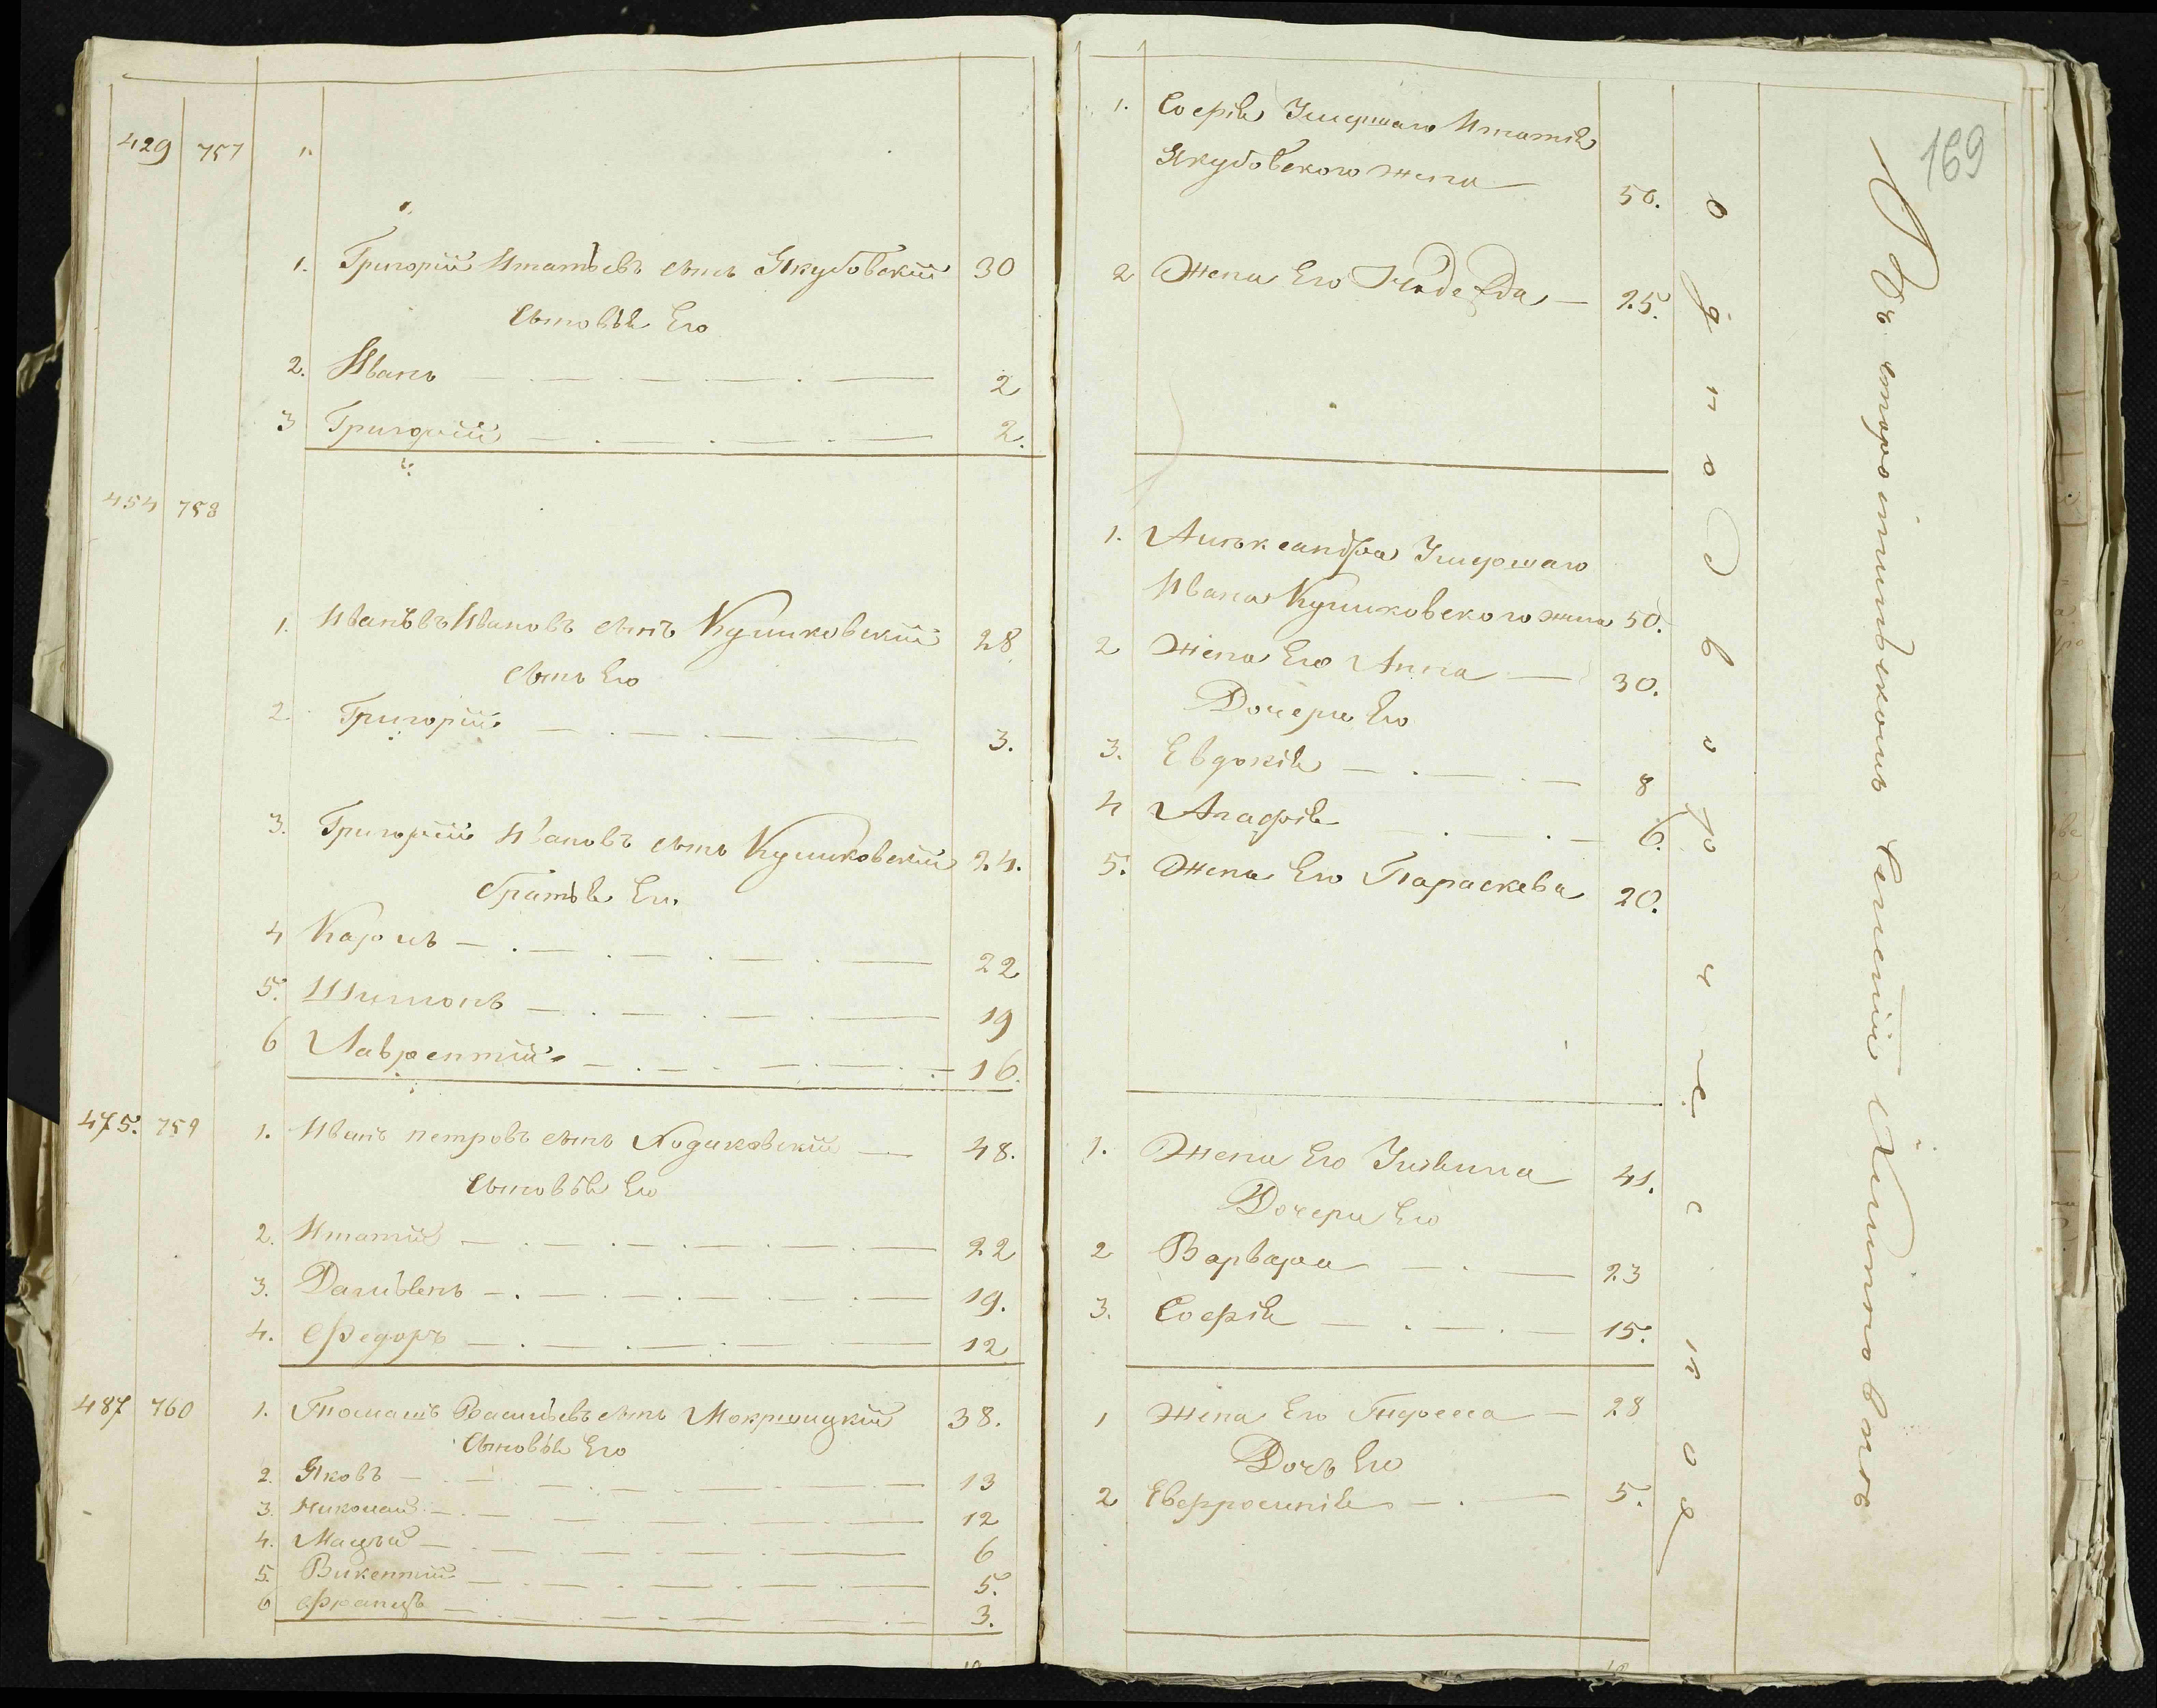 429 757 1.
1. Григорій Игнатьевъ сынъ Якубовскій 30
Сыновья Его
2. Иванъ 2
3 Григорій 2.
454 758
1. Иванъ Ивановъ сынъ Куликовскій 28
сынъ Его
2. Григорій 3.
3. Григорій Ивановъ сынъ Куликовскій 24.
братья Его
4 Кароль 22
5. Шимонъ 19
6 Лаврентій 16.
475. 759 1. Иванъ петровъ сынъ Ходаковскій 48.
Сыновья Его
2. Игнатій 22
3. 19.
4. Федоръ 12
487 760 1. Томашъ сынъ Мокршицкій 38.
Сыновья Его
2. Яковъ 13
3. Николай 12
4. Мацѣй 6
5. Викентій 5.
6 Францъ 3.
169
1. Софія Умершаго Игнатія
Якубовского жена 50.
2 Жена Его Надежда 25.
1. Алѣксандра Умершаго
Ивана Куликовского жена 50.
2 Жена Его Анна 30.
Дочери Его
3. Евдокія 8
4 Агафія 6.
5. Жена Его Параскева 20.
1. Жена Его Ульяна 41.
Дочери Его
2 Варвара 23
3. Софія 15.
1 Жена Его Тереса 28
Дочь Его
2 Евфросинія 5.
Однодворческой
Въ сторонинѣскомъ селенiи